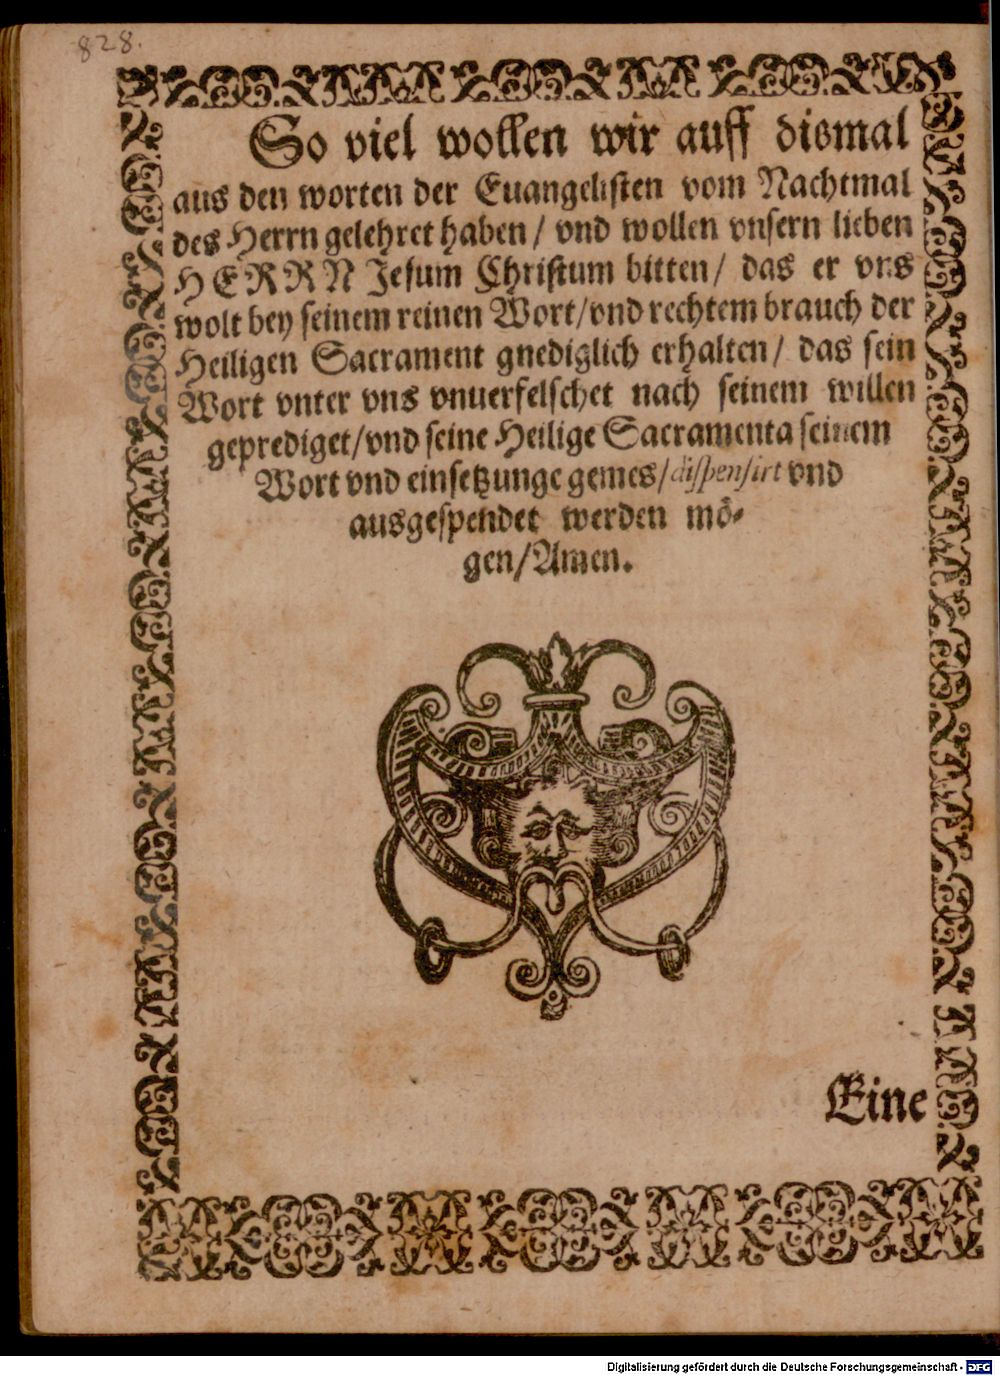 828.
So viel wollen wir auff dismal
aus den worten der Euangelisten vom Nachtmal
des Herrn gelehret haben / vnd wollen vnsern lieben
HERRN Jesum Christum bitten / das er vns
wolt bey seinem reinen Wort / vnd rechtem brauch der
Heiligen Sacrament gnediglich erhalten / das sein
Wort vnter vns vnuerfelschet nach seinem willen
geprediget / vnd seine Heilige Sacramenta seinem
Wort vnd einsetzunge gemes / dispensirt vnd
ausgespendet werden mö-
gen / Amen.
Eine
Digitalisierung gefördert durch die Deutsche Forschungsgemeinschaft - DFG